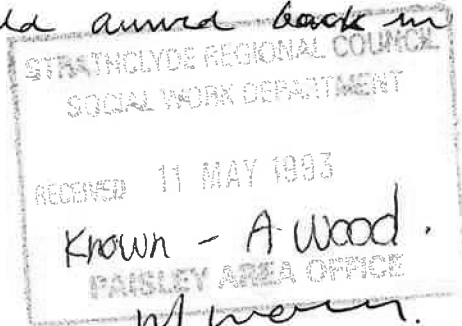 arrived back in
STRATHCLYDE REGIONAL COUNCIL
SOCIAL WORK DEPARTMENT
RECEIVED 11 MAY 1993
Known - A Wood.
PAISLEY AREA OFFICE